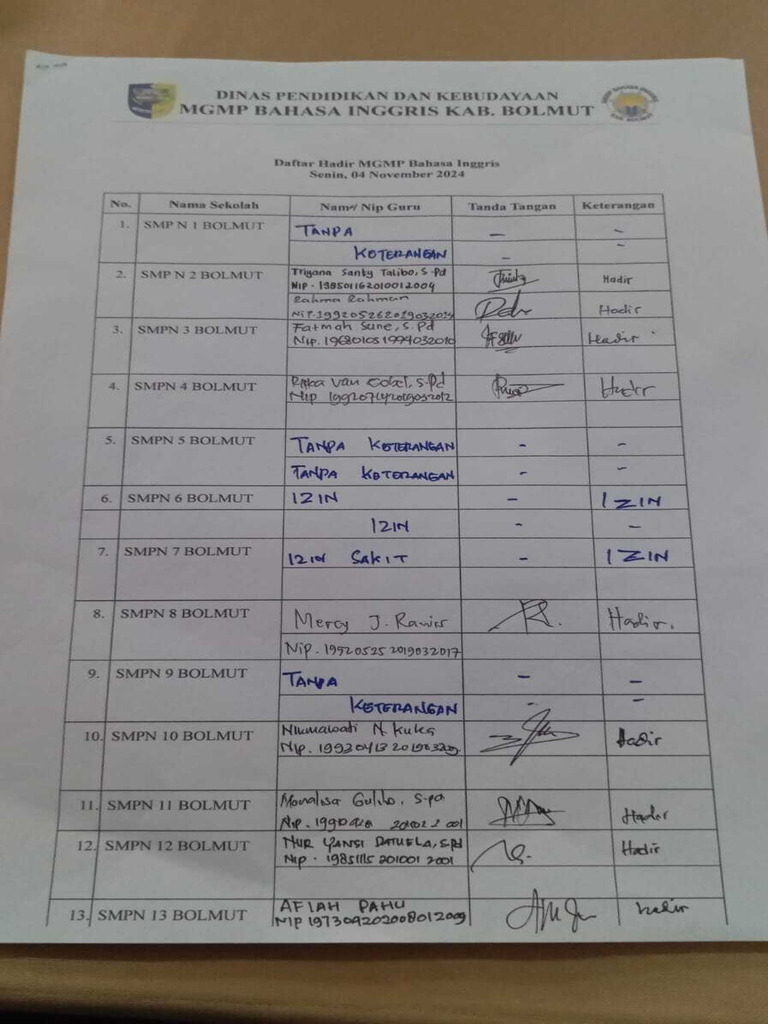 DINAS PENDIDIKAN DAN KEBUDAYAAN
MGMP BAHASA INGGRIS KAB. BOLMUT
Daftar Hadir MGMP Bahasa Inggris
Senin, 04 November 2024
No. Nama Sekolah Name/ Nip Guru Tanda Tangan Keterangan
1. SMP N 1 BOLMUT TANPA - -
KETERANGAN - -
2. SMP N 2 BOLMUT Triyana Santy Talibo, S.Pd Hadir
Nip. 198501162010012004
Rahma Rahman Hadir
Nip. 199205262019032014
3. SMPN 3 BOLMUT Fatmah Sune, S.Pd Hadir
Nip. 196801051994032010
4. SMPN 4 BOLMUT Van S.Pd Hadir
Nip
5. SMPN 5 BOLMUT TANPA KETERANGAN - -
TANPA KETERANGAN - -
6. SMPN 6 BOLMUT IZIN - IZIN
IZIN - -
7. SMPN 7 BOLMUT IZIN SAKIT - IZIN
8. SMPN 8 BOLMUT Mercy J. Hadir.
Nip. 199205252019032017
9. SMPN 9 BOLMUT TANPA - -
KETERANGAN - -
10. SMPN 10 BOLMUT N. Kuka Hadir
Nip.
11. SMPN 11 BOLMUT S.Pd Hadir
Nip.
12. SMPN 12 BOLMUT NUR YANSI DATUELA, S.Pd Hadir
Nip. 19851115 201001 2001
13. SMPN 13 BOLMUT AFLAH PAHU Hadir
NIP 197309202008012009